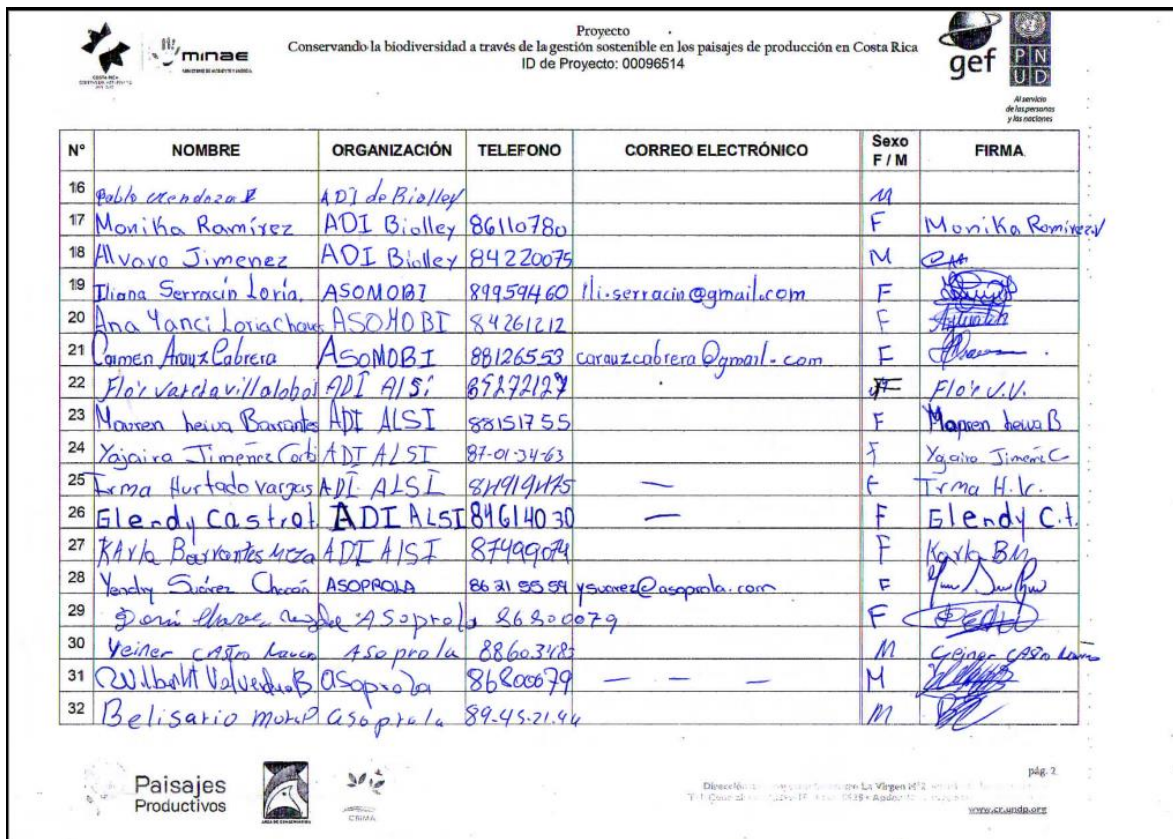 Proyecto
Conservando la biodiversidad a través de la gestión sostenible en los paisajes de producción en Costa Rica
ID de Proyecto: 00096514
minae
gef
PNUD
Al servicio
de las personas
y las naciones
N° NOMBRE ORGANIZACIÓN TELEFONO CORREO ELECTRÓNICO Sexo F / M FIRMA
16 Pablo Mendoza ADI de Biolley M
17 Monika Ramírez ADI Biolley 86110780 F Monika Ramírez
18 Alvaro Jimenez ADI Biolley 84220075 M
19 Iliana Serracín Loría. ASOMOBI 89959460 Ili-serracin@gmail.com F
20 Ana Yanci Loria ASOMOBI 84261212 F
21 Carmen Arauz Cabrera ASOMOBI 88126553 carauzcabrera@gmail.com F
22 Flor villalobos ADI AlSi F Flor V.V.
23 Barrantes ADI ALSI 88151755 F B
24 Yajaira Jimenez ADI ALSI 87-01-34-63 F Yajaira Jimenez C
25 Irma Hurtado vargas ADI ALSI — F Irma H.V.
26 Glendy Castro ADI ALSI 84614030 — F Glendy C.t.
27 KArla Barrantes Meza ADI AlSI 87499074 F Karla BM
28 Yendry Suárez Chacón ASOPROLA 86 21 55 59 ysuarez@asoprola.com F
29 Asoprola 86800079 F
30 Yeiner CAStro Asoprola M Yeiner CAStro
31 Valverde B asoprola — — — M
32 Belisario asoprola 89-45-21-44 M
Paisajes
Productivos
pág. 2
www.cr.undp.org